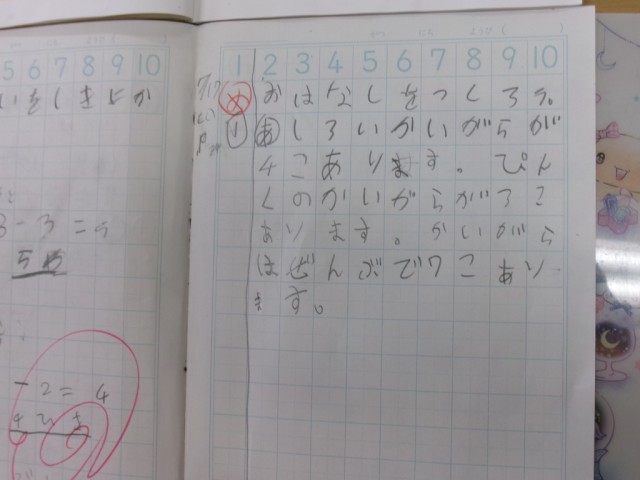 5 6 7 8 9 10
いをしきにか
- 3 = 5
- 2 = 4
1 2 3 4 5 6 7 8 9 10
め おはなしをつくろう。
① あ しろいかいがらが
4こあります。ぴん
くのかいがらが3こ
あります。かいがら
はぜんぶで7こあり
ます。